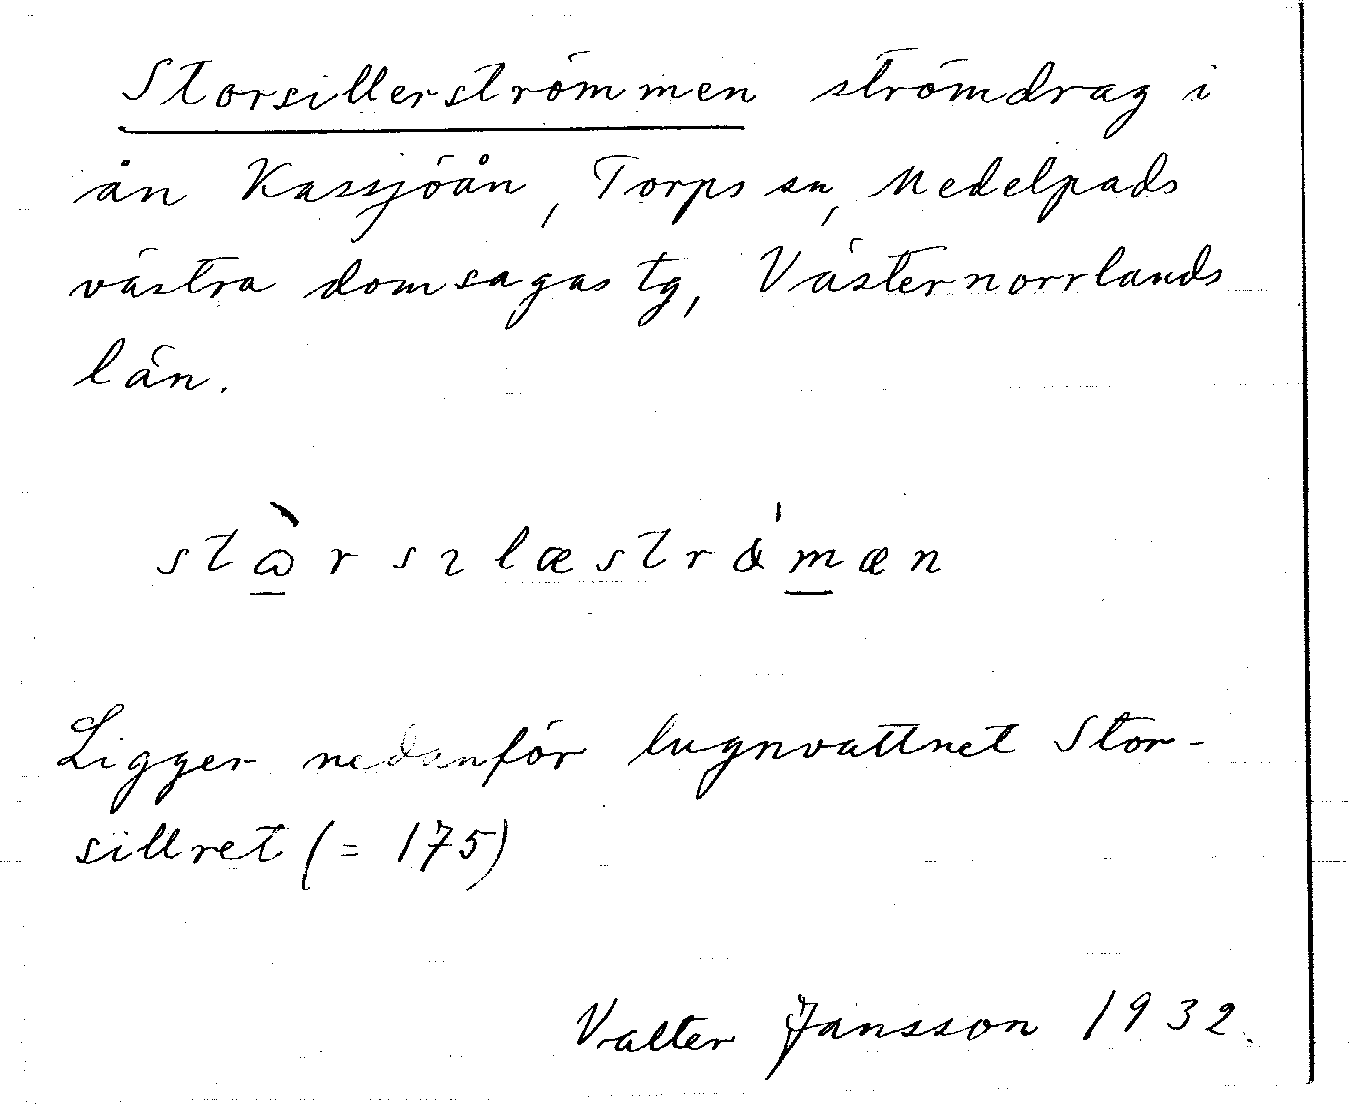 Storsillerströmmen strömdrag i
ån Kassjöån, Torps sn, Medelpads
västra domsagas tg, Västernorrlands
län.
Ligger nedanför lugnvattnet Stor-
sillret (= 175)
Valter Jansson 1932.